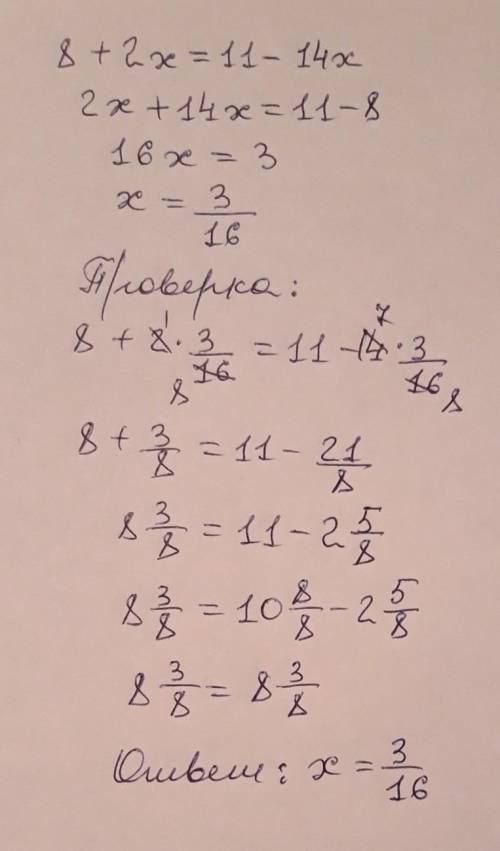 8 + 2x = 11 - 14x
2x + 14x = 11 - 8
16x = 3
x = 3/16
Проверка:
8 + 2̶ 1 · 3/1̶6̶ 8 = 11 - 1̶4̶ 7 · 3/1̶6̶ 8
8 + 3/8 = 11 - 21/8
8 3/8 = 11 - 2 5/8
8 3/8 = 10 8/8 - 2 5/8
8 3/8 = 8 3/8
Ответ: x = 3/16